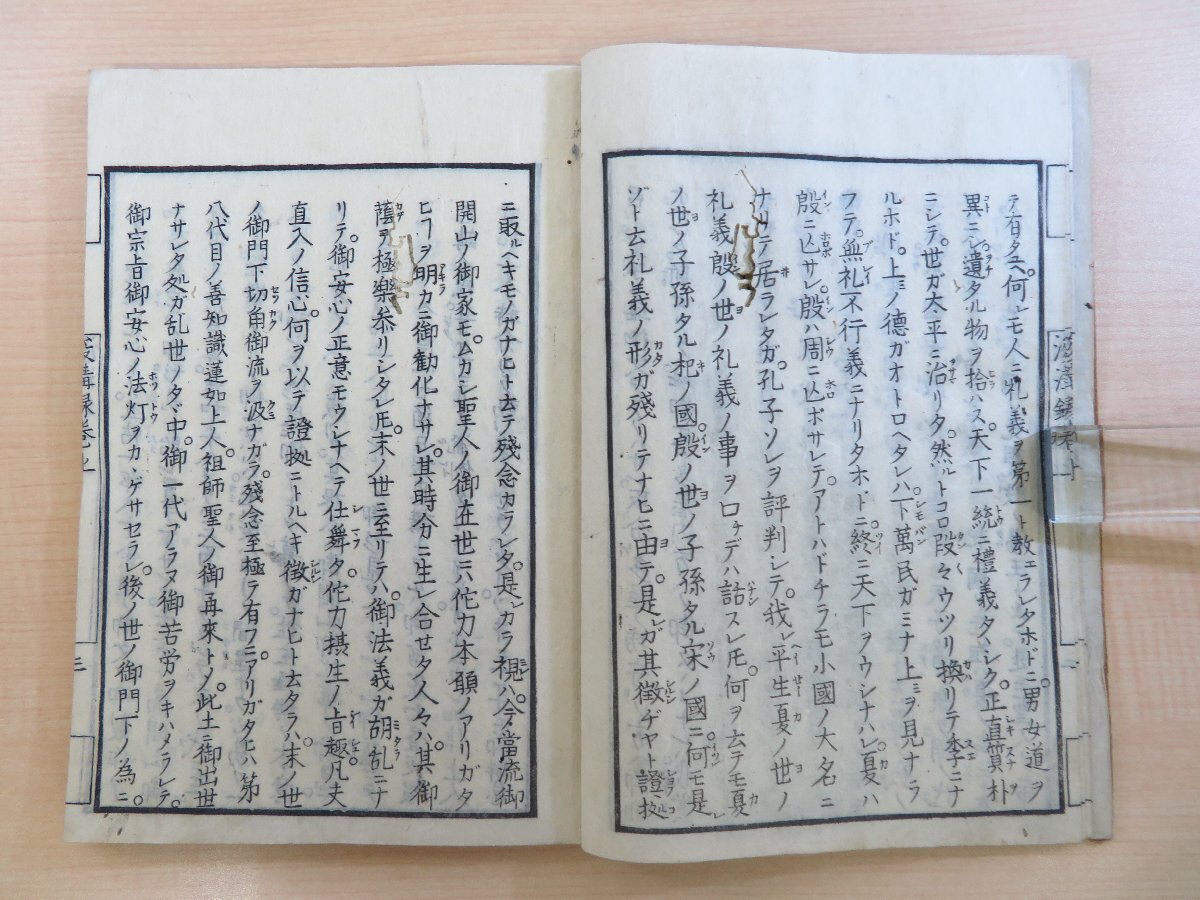 テ有タユヘ何レモ人ニ礼義ヲ第一ト教エラレタホドニ。男女道ヲ
異ニシ。遺タル物ヲ拾ハス。天下一統ニ禮義タヾシク。正直質朴
ニシテ。世ガ太平ニ治リタ。然ルトコロ段々ウツリ換リテ季ニナ
ルホド。上ミノ德ガオトロヘタレハ。下萬民ガミナ上ミヲ見ナラ
フテ。無礼不行義ニナリタホドニ。終ニ天下ヲウシナハレ。夏ハ
殷ニ亡サレ。殷ハ周ニ亡ボサレテ。アトハドチラモ小國ノ大名ニ
ナリテ居ラレタガ。孔子ソレヲ評判シテ。我レ平生夏ノ世ノ
礼義殷ノ世ノ礼義ノ事ヲロ々デハ話スレ𪜈。何ヲ云テモ夏
ノ世ノ子孫タル杞ノ國。殷ノ世ノ子孫タル宋ノ國ニ。何モ是レ
ゾト云礼義ノ形ガ残リテナヒニ由テ。是レガ其徴ヂヤト證拠
ニ取ルヘキモノガナヒト云テ殘念カラレタ。是レカラ視レハ。今當流御
開山ノ御家モ。ムカシ聖人ノ御在世ニハ佗力本願ノアリガタ
ヒフヲ明カニ御勧化ナサレ。其時分ニ生レ合セタ人々ハ。其御
蔭ヲ極樂参リシタレ𪜈。末ノ世ニ至リテハ。御法義ガ胡乱ニナ
リテ。御安心ノ正意モウシナヘテ仕舞タ。佗力摂生ノ旨趣。凡夫
直入ノ信心。何ヲ以テ證拠ニトルヘキ徴ガナヒト云タラハ。末ノ世
ノ御門下切角御流ヲ汲ナガラ。殘念至極ヲ有フニ。アリガタヒハ第
八代目ノ善知識蓮如上人。祖師聖人ノ御再來トメ。此土ニ御出世
ナサレタ処ガ乱世ノタヾ中。御一代アラヌ御苦労ヲキハメラレテ。
御宗旨御安心ノ法灯ヲカヽゲサセラレ。後ノ世ノ御門下ノ為ニ。
三